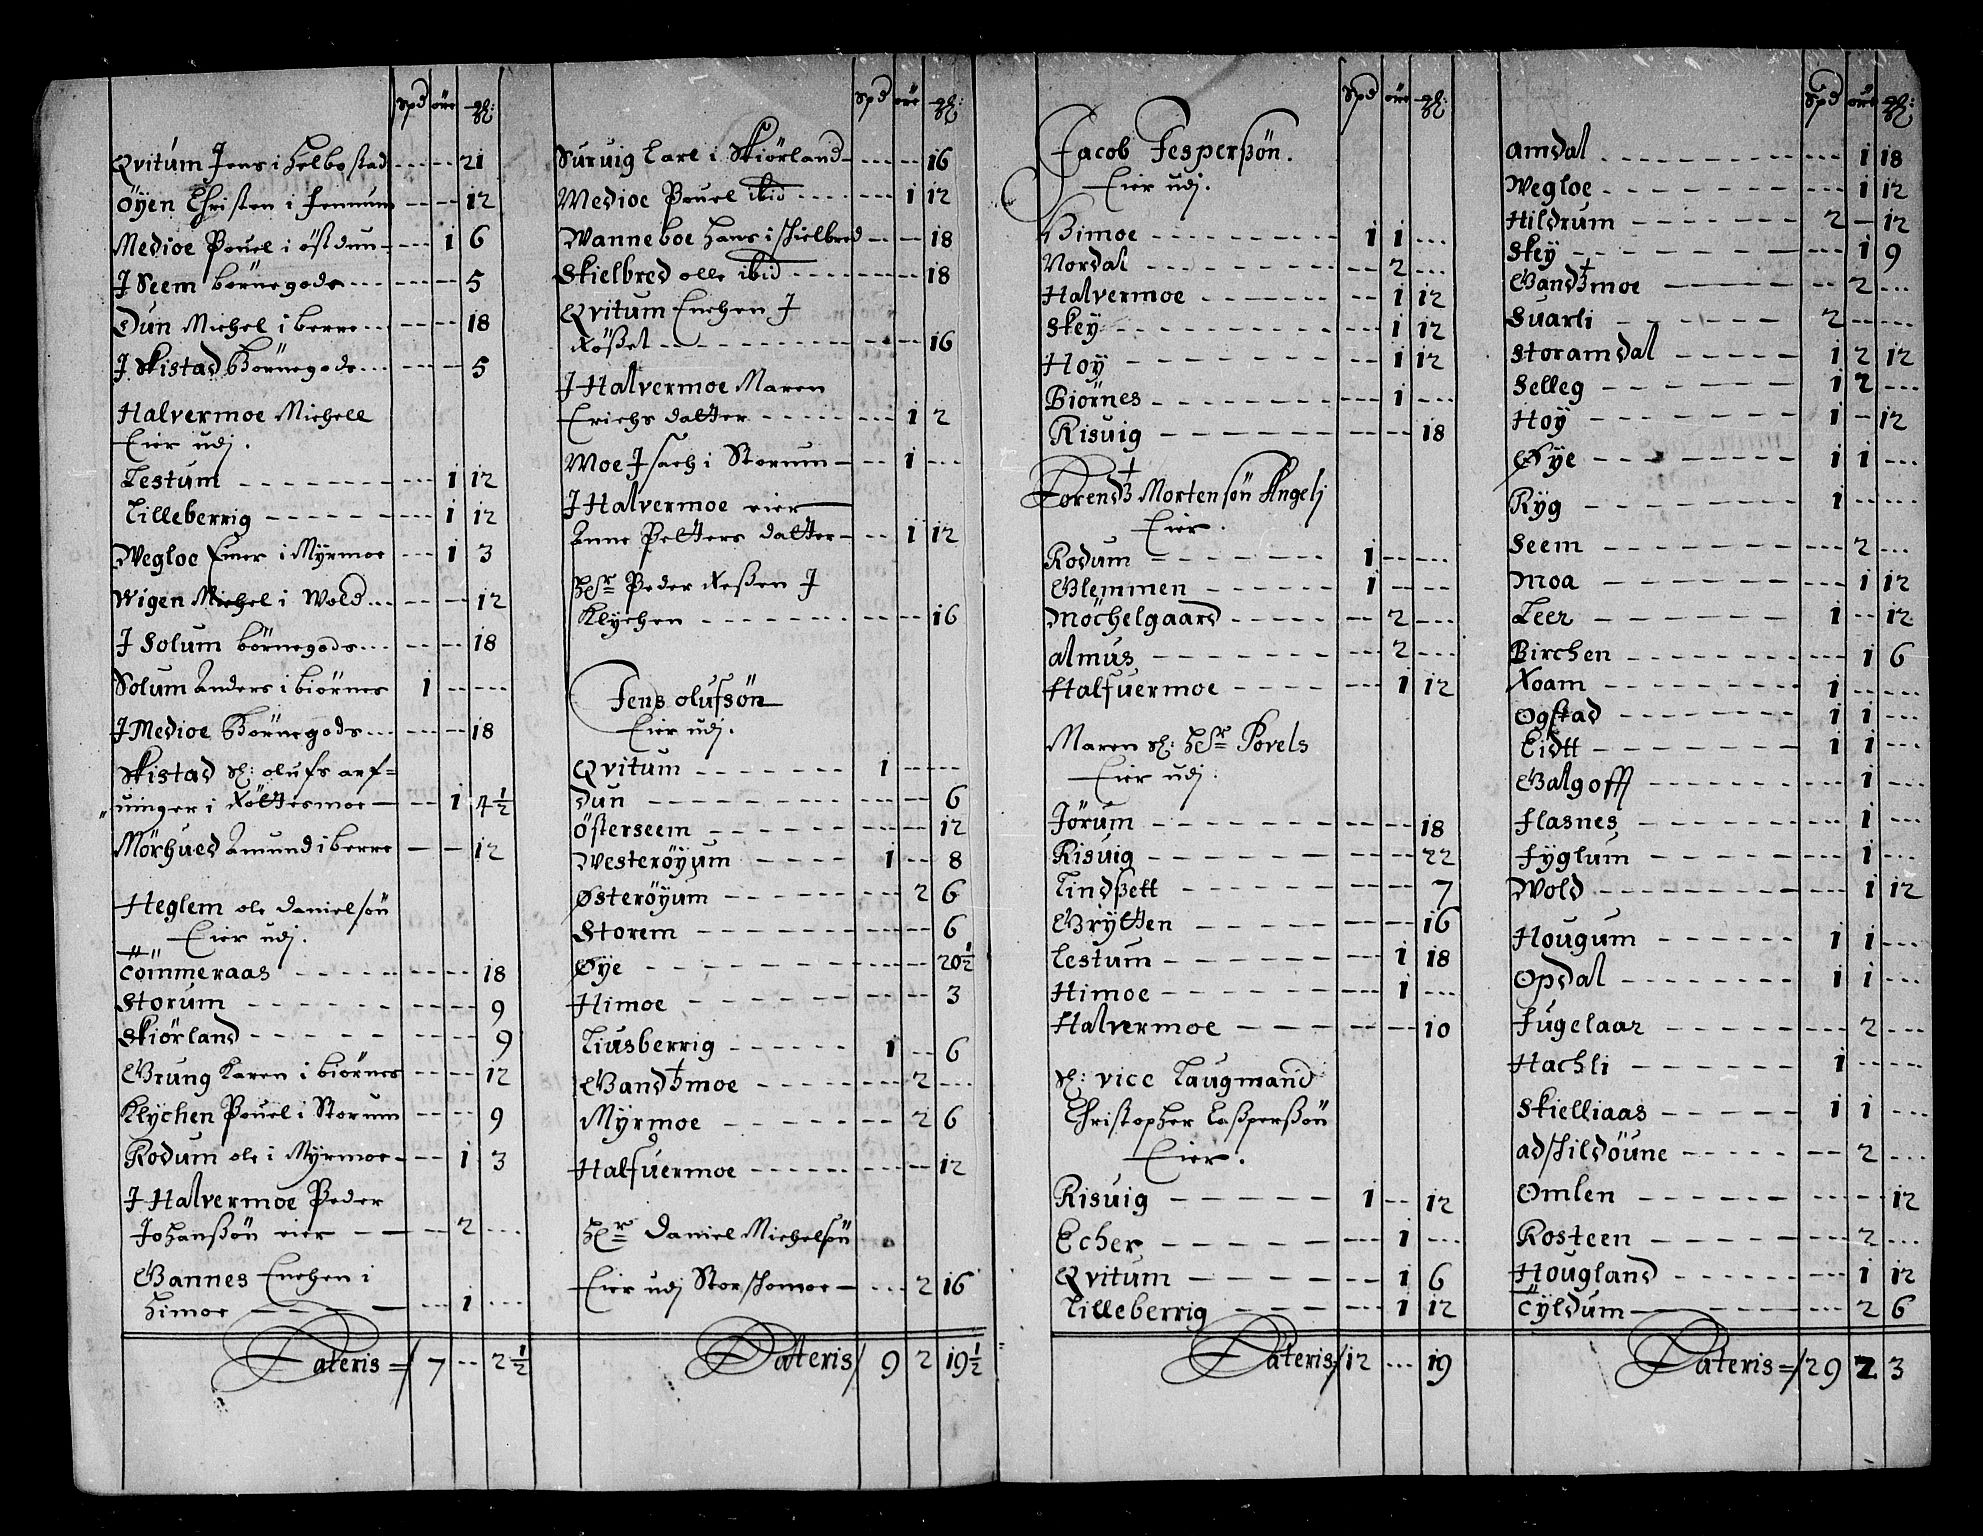 Spd öre
Qvitum Jens i Helbostad - - - 21
Öyen Christen i Jennum - - - 12
Medioe Pouel i östdun - - 1 6
J Seem börnegods - - - 5
Dun Michel i berre - - - 18
J Skistad Börnegods - - - 5
Halvermoe Michell
Eier udj.
Testum - - - 1 12
Lilleberrig - - - 1 12
Wegloe Einer i Myrmoe - - - 1 3
Wigen Michel i Wold - - - 12
J Solum börnegods - - - 18
Solum Anders i biörnes 1 - - -
J Medioe Börnegods - - - 18
Skistad Sl: olufs arf=
uinger i Xöltesmoe - - 1 4½
Mörhued Amund i berre - - 12
Heglem ole Danielsön
Eier udj.
Cömmeraas - - - 18
Storum - - - 9
Skiörland - - - 9
Grung Karen i biörnes - - - 12
Klychen Pouel i Storum - - - 9
Rodum ole i Myrmoe - - - 1 3
J Halvermoe Peder
Johanßön eier - - - 2 - - -
Gannes Enchen i
Himoe - - - 1 - - -
Lateris = 7 - - 2½
Spd öre
Suruig Carl i Skiörland - - - 16
Medioe Pouel ibid - - - 1 12
Wanneboe Hans i Skielbred - - - 18
Skielbred olle ibid - - - 18
Qvitum Enchen J
Xößet - - - 16
J Halvermoe Maren
Erichs datter - - - 1 2
Moe Jsach i Storum - - - 1 - - -
J Halvermoe eier
Anne Petters datter - - - 1 12
Hr Peder Xeßen J
Klychen - - - 16
Jens olufsön
Eier udj.
Qvitum - - - 1 - - -
Dun - - - 6
österseem - - - 12
Westeröyum - - - 1 - - 8
Østeröyum - - - 2 6
Storem - - - 6
Øye - - - 20½
Himoe - - - 3
Liusberrig - - - 1 - - 6
Gandtzmoe - - - 2 - - -
Myrmoe - - - 2 6
Halfuermoe - - - 12
Hr Daniel Michelsön
Eier udj Storskomoe - - - 2 16
Lateris / 9 2 19½
Spd öre
Jacob Jesperßön.
Eier udj.
Himoe - - - 1 1 - - -
Nordal - - - 2 - - -
Halvermoe - - - 1 12
Skey - - - 1 12
Hoy - - - 1 12
Biörnes - - - 1 - - -
Risuig - - - 18
Lorendtz Mortensön Angelj
Eier.
Rodum - - - 1 - - -
Glemmen - - - 1 - - -
Möchelgaard - - - 2 - - -
almus - - - 2 - - -
Halfuermoe - - - 1 12
Maren Sl: Hr Povels
Eier udj.
Jörum - - - 18
Risuig - - - 22
Lindßett - - - 7
Grytten - - - 16
Testum - - - 1 18
Himoe - - - 1 - - -
Halvermoe - - - 10
Sl: vice Laugmand
Christopher Caßperßön
Eier.
Risuig - - - 1 - - 12
Echer - - - 1 - - -
Qvitum - - - 1 6
Lilleberrig - - - 1 12
Lateris / 12 - - - 19
Spd öre
Amdal - - - 1 18
Wegloe - - - 1 12
Hildrum - - - 2 - 12
Skey - - - 1 9
Gandtzmoe - - - 2 - - -
Suarli - - - 2 - - -
Storamdal - - - 1 2 12
Selleg - - - 1 2 - - -
Hoy - - - 1 - 12
Øye - - - 1 1 - - -
Ryg - - - 1 - - -
Seem - - - 2 - - -
Moa - - - 1 12
Leer - - - 1 - - 12
Birchen - - - 1 6
Xoam - - - 1 - - -
Ogstad - - - 1 1 - - -
Eidtt - - - 1 1 - - -
Galgoff - - - 1 - - -
Flasnes - - - 1 - - -
Fyglum - - - 1 - - -
Wold - - - 1 12
Hougum - - - 1 1 - - -
Opdal - - - 1 1 - - -
Fugelaar - - - 2 - - -
Hachli - - - 1 - - -
Skielliaas - - - 1 1 - - -
adskildöune - - - 2 - - -
Omlen - - - 12
Kosteen - - - 2 - - -
Hougland - - - 1 12
Cyldum - - - 2 6
Lateris = / 29 2 3